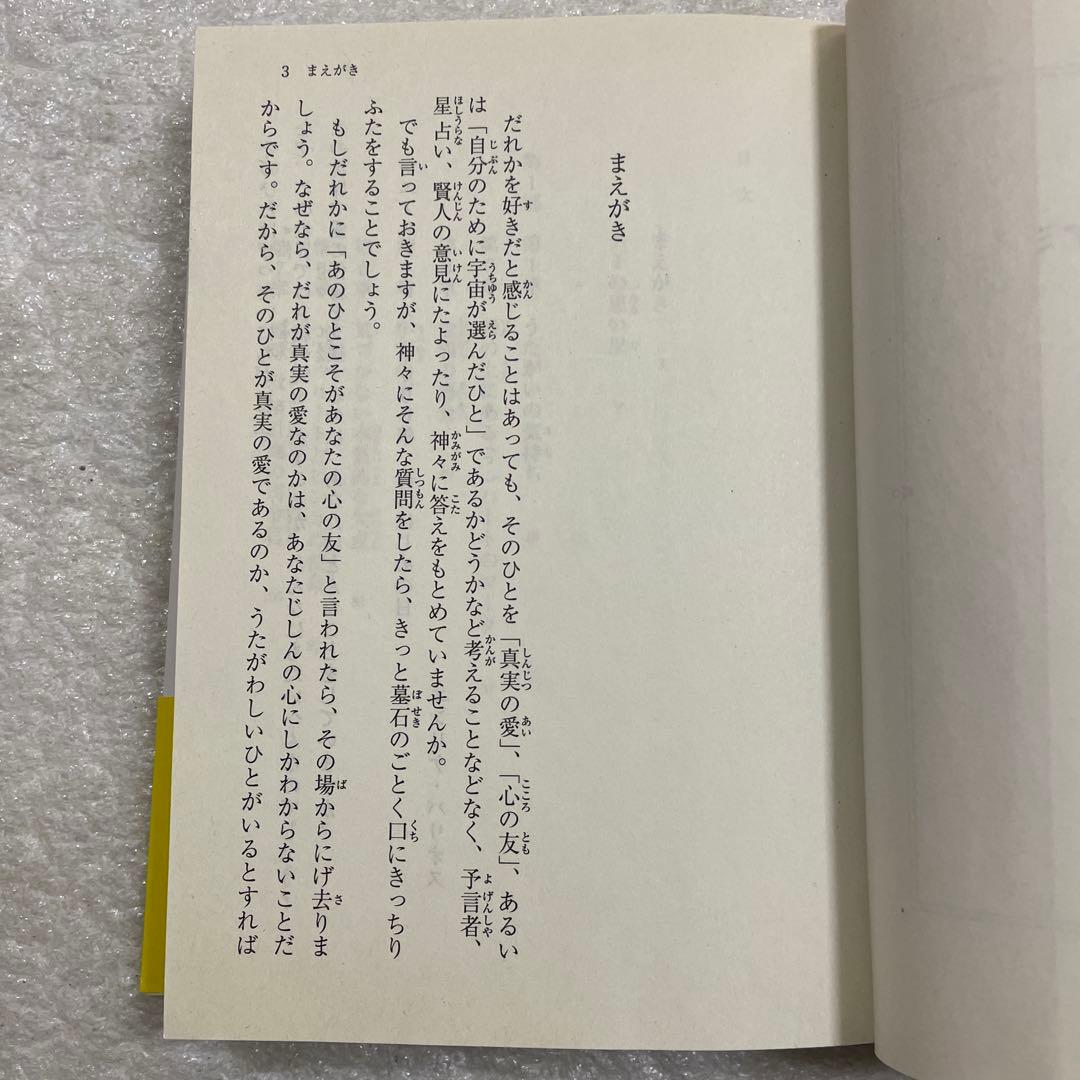 3 まえがき
まえがき
だれかを好きだと感じることはあっても、そのひとを「真実の愛」、「心の友」、あるい
は「自分のために宇宙が選んだひと」であるかどうかなど考えることなどなく、予言者、
星占い、賢人の意見にたよったり、神々に答えをもとめていませんか。
でも言っておきますが、神々にそんな質問をしたら、きっと墓石のごとく口にきっちり
ふたをすることでしょう。
もしだれかに「あのひとこそがあなたの心の友」と言われたら、その場からにげ去りま
しょう。なぜなら、だれが真実の愛なのかは、あなたじしんの心にしかわからないことだ
からです。だから、そのひとが真実の愛であるのか、うたがわしいひとがいるとすれば